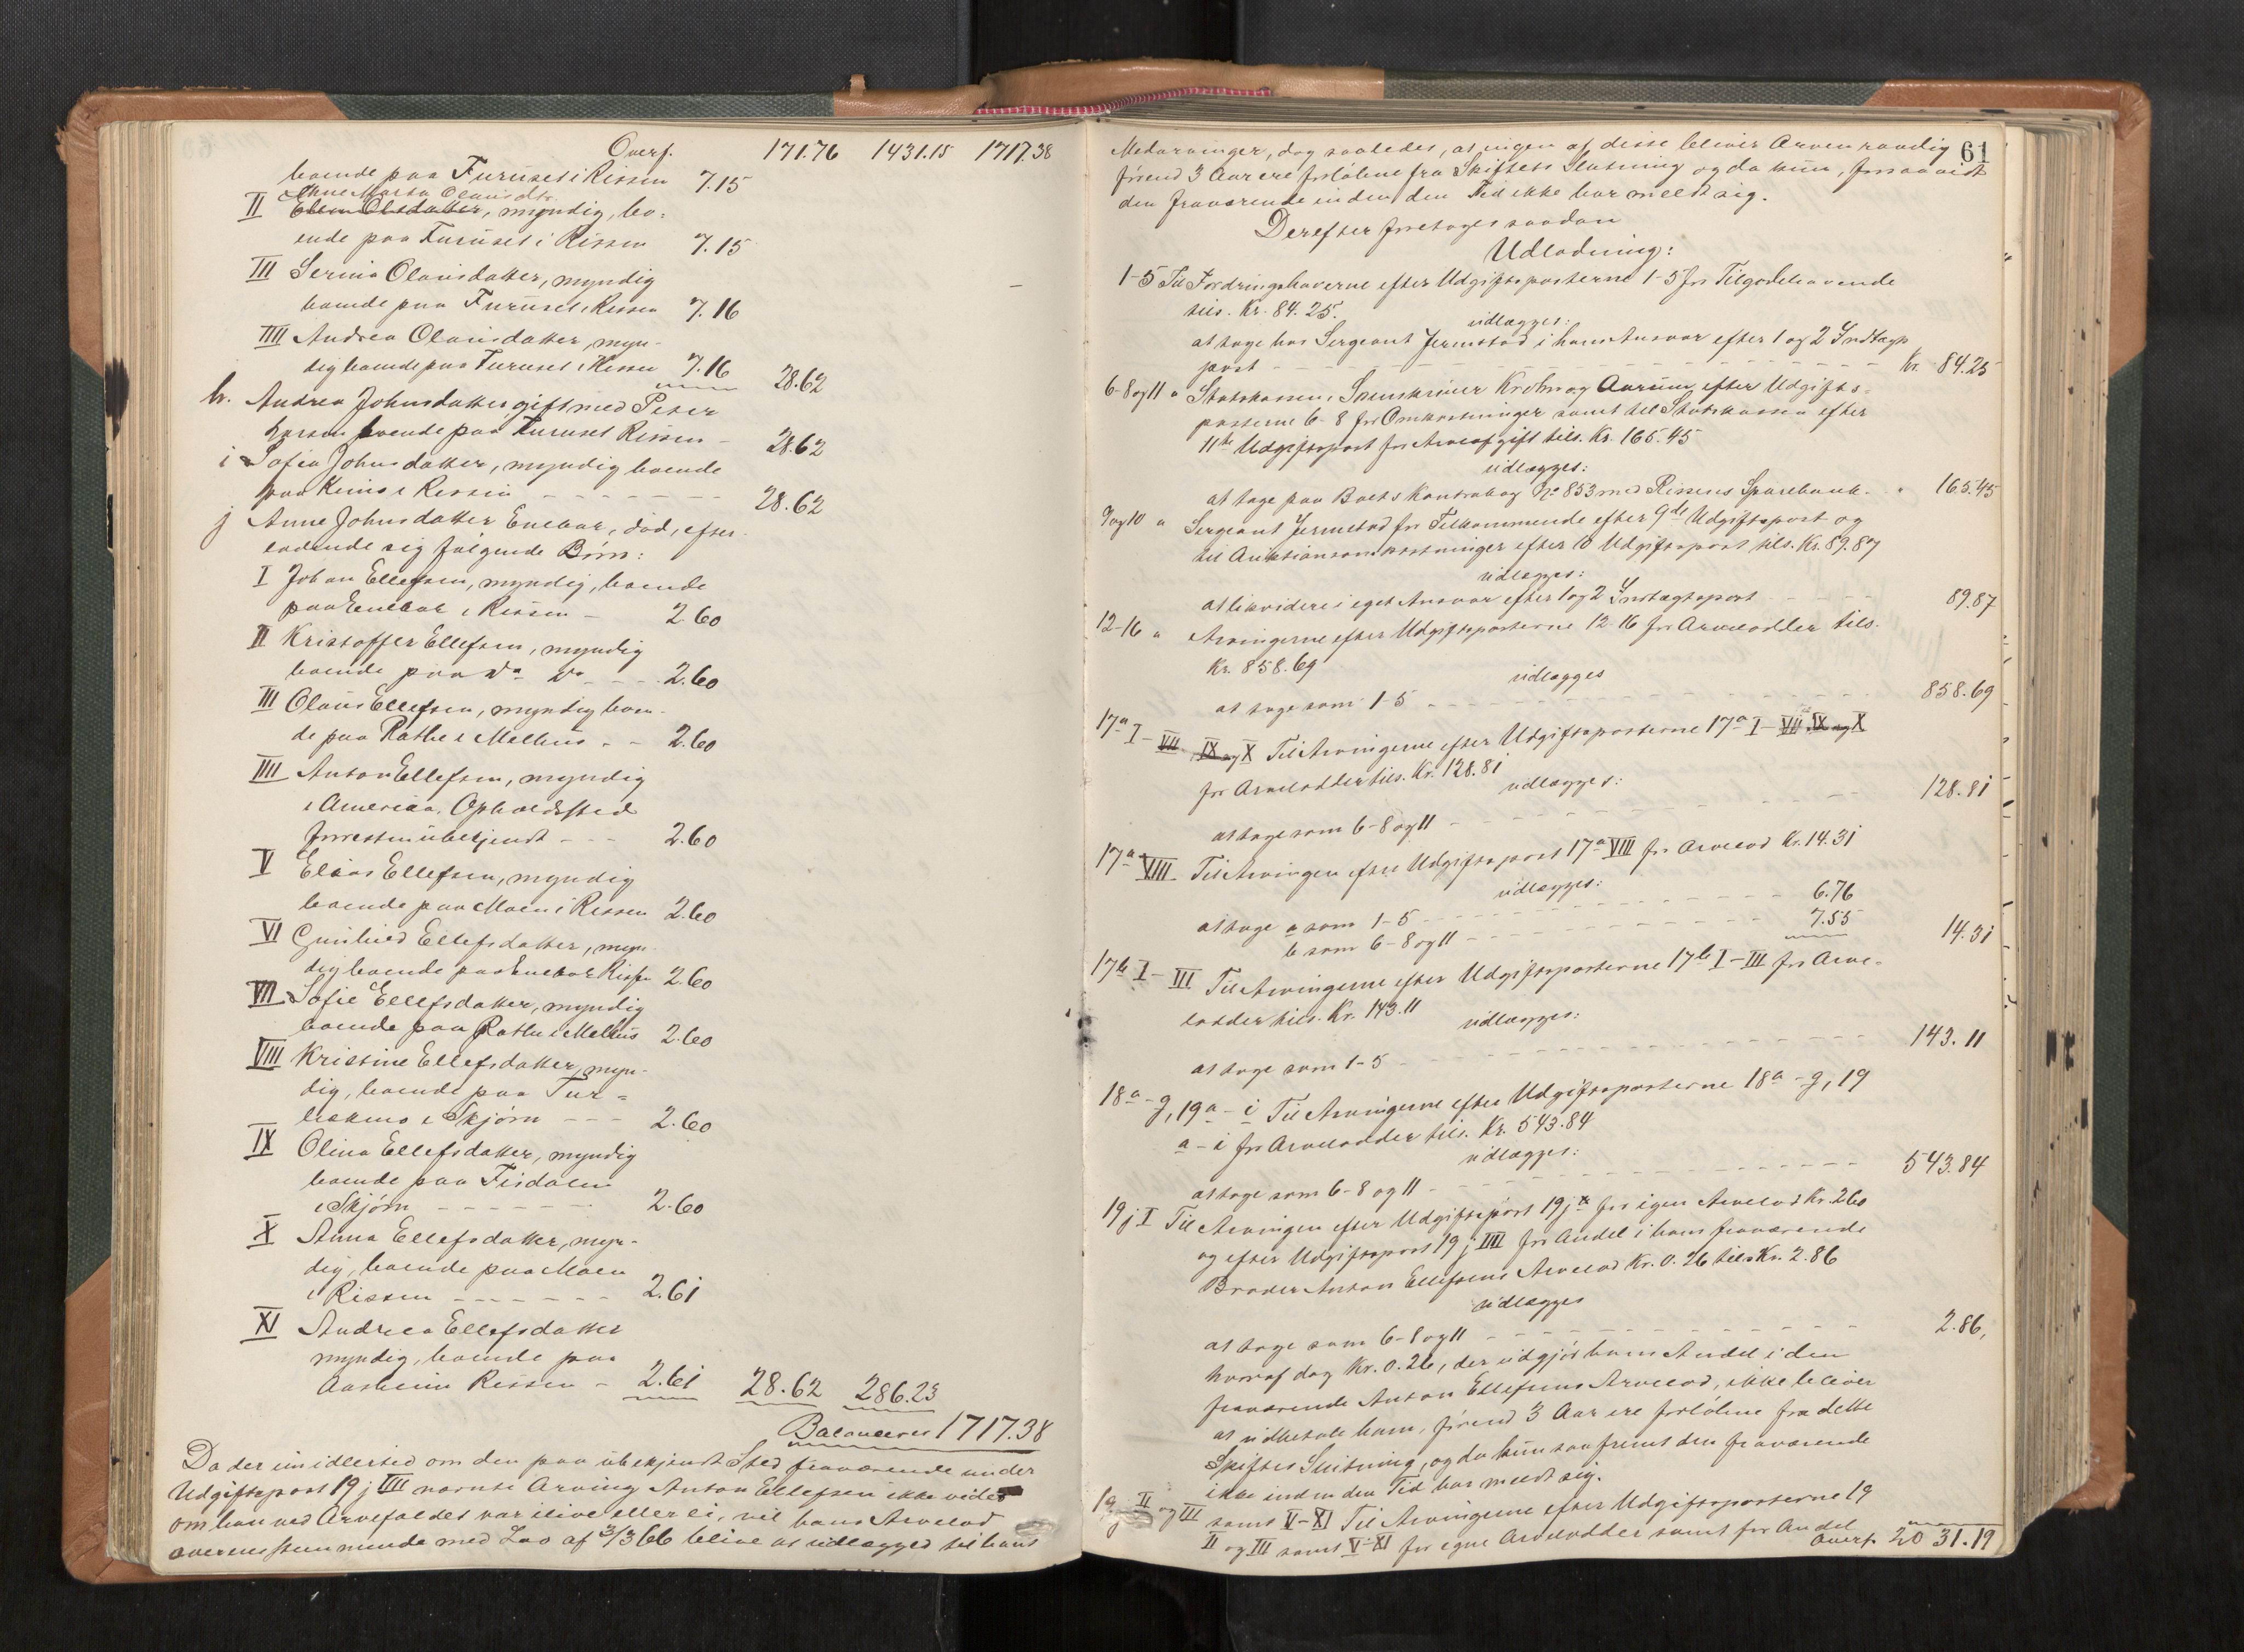 Overf. 171.76 1431.15 1717.38
boende paa Furuset i Rissen 7.15
Ane Marta Olausdtr.
II Ellen Olsdatter, myndig, bo-
ende paa Furuset i Rissen 7.15
III Serina Olausdatter, myndig
boende paa Furuset i Rissen 7.16
IIII Andrea Olausdatter, myn-
dig boende paa Furuset i Rissen 7.16 28.62
h. Andrea Johnsdatter, gift med Peter
Larsen boende paa Furuset Rissen – 28.62
i Sofia Johnsdatter, myndig boende
paa i Rissen – – – – – – – 28.62
j Anne Johnsdatter Enebar, død, efter-
ladende sig følgende Børn:
I Johan Ellefsen, myndig, boende
paa Enebar i Rissen – 2.60
II Kristoffer Ellefsen, myndig
boende paa do do – – – 2.60
III Olaus Ellefsen, myndig boen-
de paa Rathe i Melhus – – 2.60
IIII Anton Ellefsen, myndig
i Amerika, Opholdssted
forresten ubekjendt – – – 2.60
V Elias Ellefsen, myndig
boende paa Moen i Rissen 2.60
VI Gunhild Ellefsdatter, myn-
dig boende paa Enebar Rissen 2.60
VII Sofie Ellefsdatter, myndig
boende paa Rathe i Melhus 2.60
VIII Kristine Ellefsdatter, myn-
dig, boende paa Tur-
i Skjørn – – – 2.60
IX Olina Ellefsdatter, myndig
boende paa
i Skjørn – – – – – – – 2.60
X Anna Ellefsdatter, myn-
dig, boende paa Moen
i Rissen – – – – – – – 2.61
XI Andrea Ellefsdatter
myndig, boende paa
Aasheim Rissen – 2.61 28.62 286.23
Balancerer 1717.38
Da der imidlertid om den paa ubekjendt Sted fraværende under
Udgiftspost 19 j IIII nævnte Arving Anton Ellefsen ikke vides
om han ved Arvefaldet var ilive eller ei, vil hans Arvelod
overensstemmende med Lov af 3/3 66 blive at udlægges til hans
61
Medarvinger, dog saaledes, at ingen af disse bliver Arven raadig
førend 3 Aar ere forløbne fra Skiftets Slutning og da kun, forsaavidt
den fraværende inden den Tid ikke har meldt sig.
Derefter foretages saadan
Udlodning:
1-5 Til Fordringshaverne efter Udgiftsposterne 1-5 for Tilgodehavende
tils. Kr. 84.25.
udlægges:
at tage hos Sergeant Jermstad i hans Ansvar efter 1 og 2 Indtægts
post – – – – – – – – – – Kr. 84.25
6-8 og 11 " Statskassen, Sorenskriver Krohn og Aarum efter Udgifts-
posterne 6-8 for Omkostninger samt til Statskassen efter
11te Udgiftspost for Arveafgift tils. Kr. 165.45
udlægges:
at tage paa Boets Kontrabog No 853 med Rissens Sparebank. " 165.45
9 og 10 " Sergeant Jermstad for Tilkommende efter 9de Udgiftspost og
til Auktionsomkostninger efter 10 Udgiftspost tils. Kr. 89.87
udlægges:
at likvidere i eget Ansvar efter 1 og 2 Indtægtspost – – – 89.87
12-16 " Arvingerne efter Udgiftsposterne 12-16 for Arvelodder tils.
Kr. 858.69
udlægges
at tage som 1-5 – – – – – – – – – – 858.69
17a I – VII IX og X Til Arvingerne efter Udgiftsposterne 17a I – VII IX og X
for Arvelodder tils. Kr. 128.81
udlægges:
at tage som 6-8 og 11 – – – – – – – – 128.81
17a VIII Til Arvingen efter Udgiftspost 17a VIII for Arvelod Kr. 14.31
udlægges:
at tage a som 1-5 – – – – – – – 6.76
b som 6-8 og 11 – – – – – – – 7.55 14.31
17b I – III Til Arvingerne efter Udgiftsposterne 17b I – III for Arve-
lodder tils. Kr. 143.11
udlægges:
at tage som 1-5 – – – – – – – – – – 143.11
18a – g, 19a – i Til Arvingerne efter Udgiftsposterne 18a – g, 19
a – i for Arvelodder tils. Kr. 543.84
udlægges:
at tage som 6-8 og 11 – – – – – – – – 543.84
19 j I Til Arvingen efter Udgiftspost 19 j I for egen Arvelod Kr. 2.60
og efter Udgiftspost 19 j IIII for Andel i hans fraværende
Broder Anton Ellefsens Arvelod Kr. 0.26 tils. Kr. 2.86
udlægges
at tage som 6-8 og 11 – – – – – – – – 2.86,
hvoraf dog Kr. 0.26, der udgjør hans Andel i den
fraværende Anton Ellefsens Arvelod, ikke bliver
at udbetale ham, førend 3 Aar ere forløbne fra dette
Skiftes Slutning, og da kun saafremt den fraværende
ikke inden den Tid har meldt sig.
19 j II og III samt V – XI Til Arvingerne efter Udgiftsposterne 19
II og III samt V – XI for egne Arvelodder samt for Andel
Overf. 2031.19